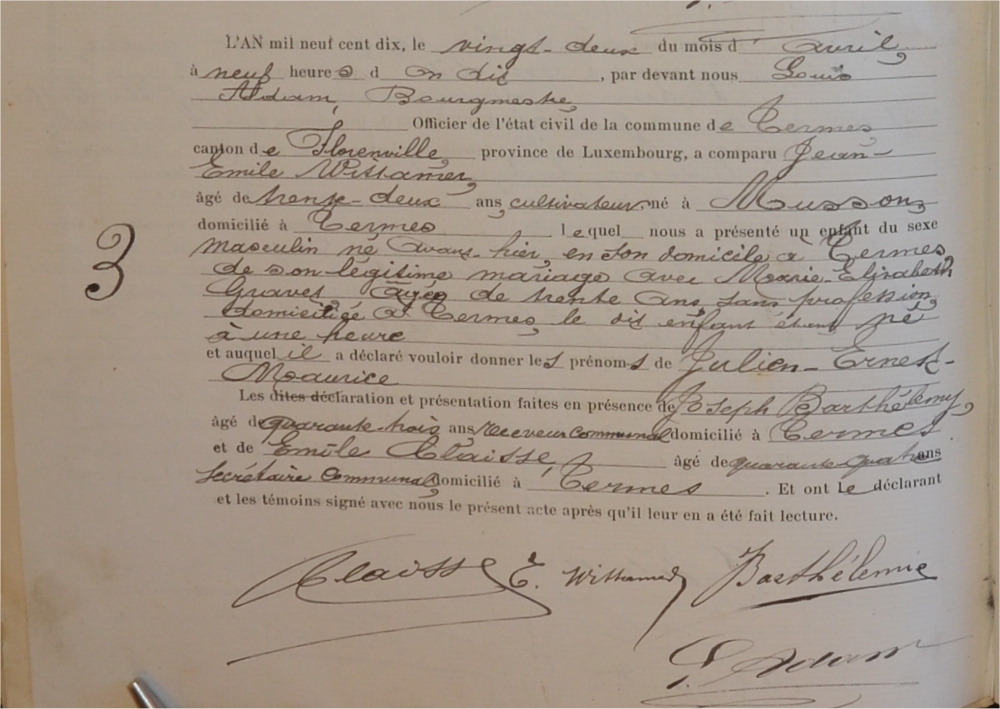 L'AN mil neuf cent dix, le vingt-deux du mois d'avril,
à neuf heures d u dit, par devant nous Louis
Adam, Bourgmestre,
Officier de l'état civil de la commune de Termes
canton de Florenville, province de Luxembourg, a comparu Jean-
Emile Wittamer,
âgé de trente-deux ans, cultivateur, né à Musson,
domicilié à Termes lequel nous a présenté un enfant du sexe
3
masculin né avant-hier, en son domicile à Termes,
de son légitime mariage avec Marie-Elisabeth
Gravet, âgée de trente ans, sans profession,
domiciliée à Termes, le dit enfant étant né
à une heure
et auquel il a déclaré vouloir donner les prénoms de Julien-Ernest-
Maurice
Les dites déclaration et présentation faites en présence de Joseph Barthélemy,
âgé de quarante-trois ans, receveur communal domicilié à Termes
et de Emile Claisse, âgé de quarante-quatre ans
secrétaire communal, domicilié à Termes. Et ont le déclarant
et les témoins signé avec nous le présent acte après qu'il leur en a été fait lecture.
Claisse E. Wittamer Barthélemie
L. Adam